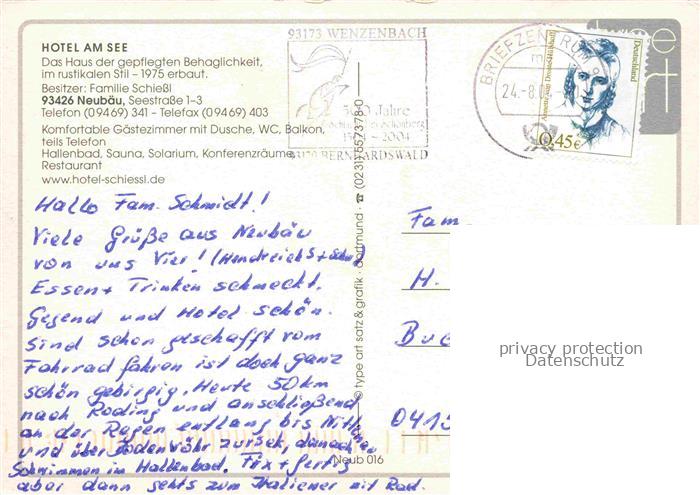 HOTEL AM SEE
Das Haus der gepflegten Behaglichkeit,
im rustikalen Stil – 1975 erbaut.
Besitzer: Familie Schießl
93426 Neubäu, Seestraße 1–3
Telefon (09469) 341 – Telefax (09469) 403
Komfortable Gästezimmer mit Dusche, WC, Balkon,
teils Telefon
Hallenbad, Sauna, Solarium, Konferenzräume,
Restaurant
www.hotel-schiessl.de
93173 WENZENBACH
500 Jahre
Schlacht bei Schönberg
1504 – 2004
93170 BERNHARDSWALD
BRIEFZENTRUM
24.-8.0
Deutschland
Annette von Droste-Hülshoff
0,45€
Hallo Fam. Schmidt!
Viele Grüße aus Neubäu
von uns Vier! (Hendreich S +
Essen + Trinken schmeckt.
Gegend und Hotel schön.
Sind schon geschafft vom
Fahrrad fahren ist doch ganz
schön gebirgig. Heute 50km
nach Roding und anschließend
an der Regen entlang bis
und über Bodenwöhr zurück, danach
Schwimmen im Hallenbad. Fix + fertig
aber dann gehts zum Italiener mit Rad.
© type art satz & grafik · dortmund · ☎ (0231) 557378-0
Neub 016
Fam
H.
Buc
0415
privacy protection
Datenschutz